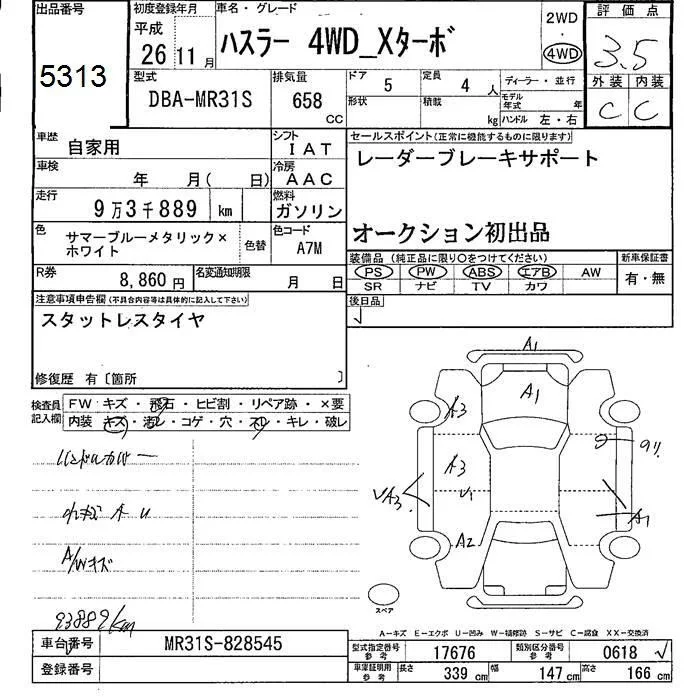 出品番号
5313
初度登録年月
平成
26 11月
車名・グレード
ハスラー 4WD_Xターボ
2WD
・
4WD
評価点
3.5
外装 内装
C C
型式
DBA-MR31S
排気量
658
CC
ドア 5
定員 4 人
形状
積載 kg
ディーラー・並行
モデル年式 年
ハンドル 左・右
車歴
自家用
シフト
IAT
車検
年 月( 日)
冷房
AAC
走行
9万3千889 km
燃料
ガソリン
色
サマーブルーメタリック×
ホワイト
色替
色コード
A7M
R券
8,860円
名変通知期限
月 日
セールスポイント(正常に機能するものに限ります)
レーダーブレーキサポート
オークション初出品
装備品(純正品に限り○をつけてください)
新車保証書
PS PW ABS エアB AW
SR ナビ TV カワ
有・無
注意事項申告欄(不具合内容等は具体的に記入して下さい)
スタットレスタイヤ
修復歴 有〔箇所 〕
後日品
検査員
記入欄
FW キズ・飛石・ヒビ割・リペア跡・×要
内装 キズ・汚レ・コゲ・穴・スレ・キレ・破レ
ハンドルカバー
A/Wキズ
93889km
A1
A1
A3
A3
U1
A2
A1
スペア
A-キズ E-エクボ U-凹み W-補修跡 S-サビ C-腐食 XX-交換済
車台番号
MR31S-828545
登録番号
型式指定番号
参考
17676
類別区分番号
参考
0618
車庫証明用
参考
長さ 339 cm
幅 147 cm
高さ 166 cm